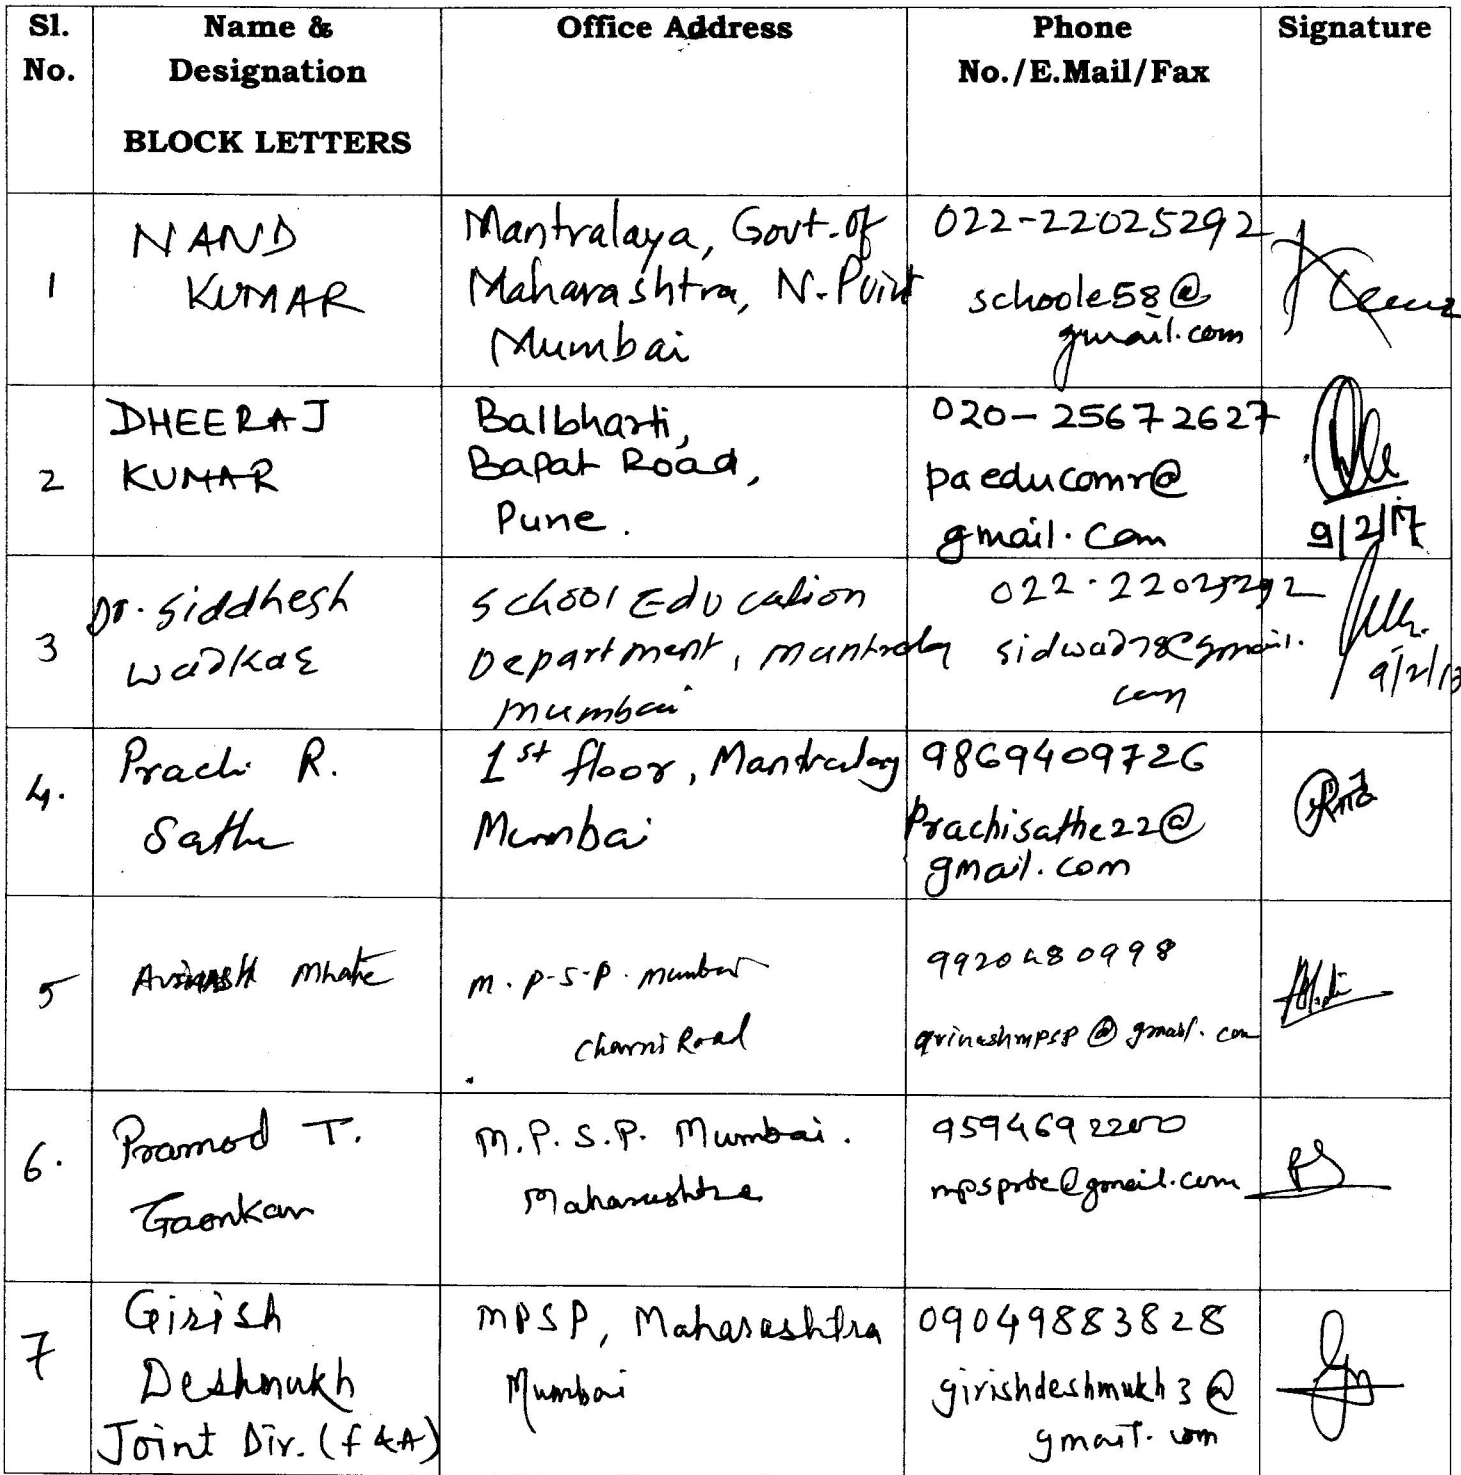 Sl. No.
Name & Designation
BLOCK LETTERS
Office Address
Phone No./E.Mail/Fax
Signature
1
NAND
KUMAR
Mantralaya, Govt. of
Maharashtra, N. Point
Mumbai
022-22025292
schoole58@
gmail.com
2
DHEERAJ
KUMAR
Balbharti,
Bapat Road,
Pune.
020-25672627
paeducomr@
gmail.com
9/2/17
3
Dr. Siddhesh
Wadkar
School Education
Department, Mantralay
Mumbai
022-22025292
sidwad78@gmail.
com
9/2/17
4.
Prachi R.
Sathe
1st floor, Mantralay
Mumbai
9869409726
Prachisathe22@
gmail.com
5
Avinash Mhatre
M.P.S.P. Mumbai
Charni Road
9920480998
avinashmpsp@gmail.com
6.
Pramod T.
Gaonkar
M.P.S.P. Mumbai.
Maharashtra
9594692200
mpsprte@gmail.com
7
Girish
Deshmukh
Joint Dir. (F & A)
MPSP, Maharashtra
Mumbai
09049883828
girishdeshmukh3@
gmail.com